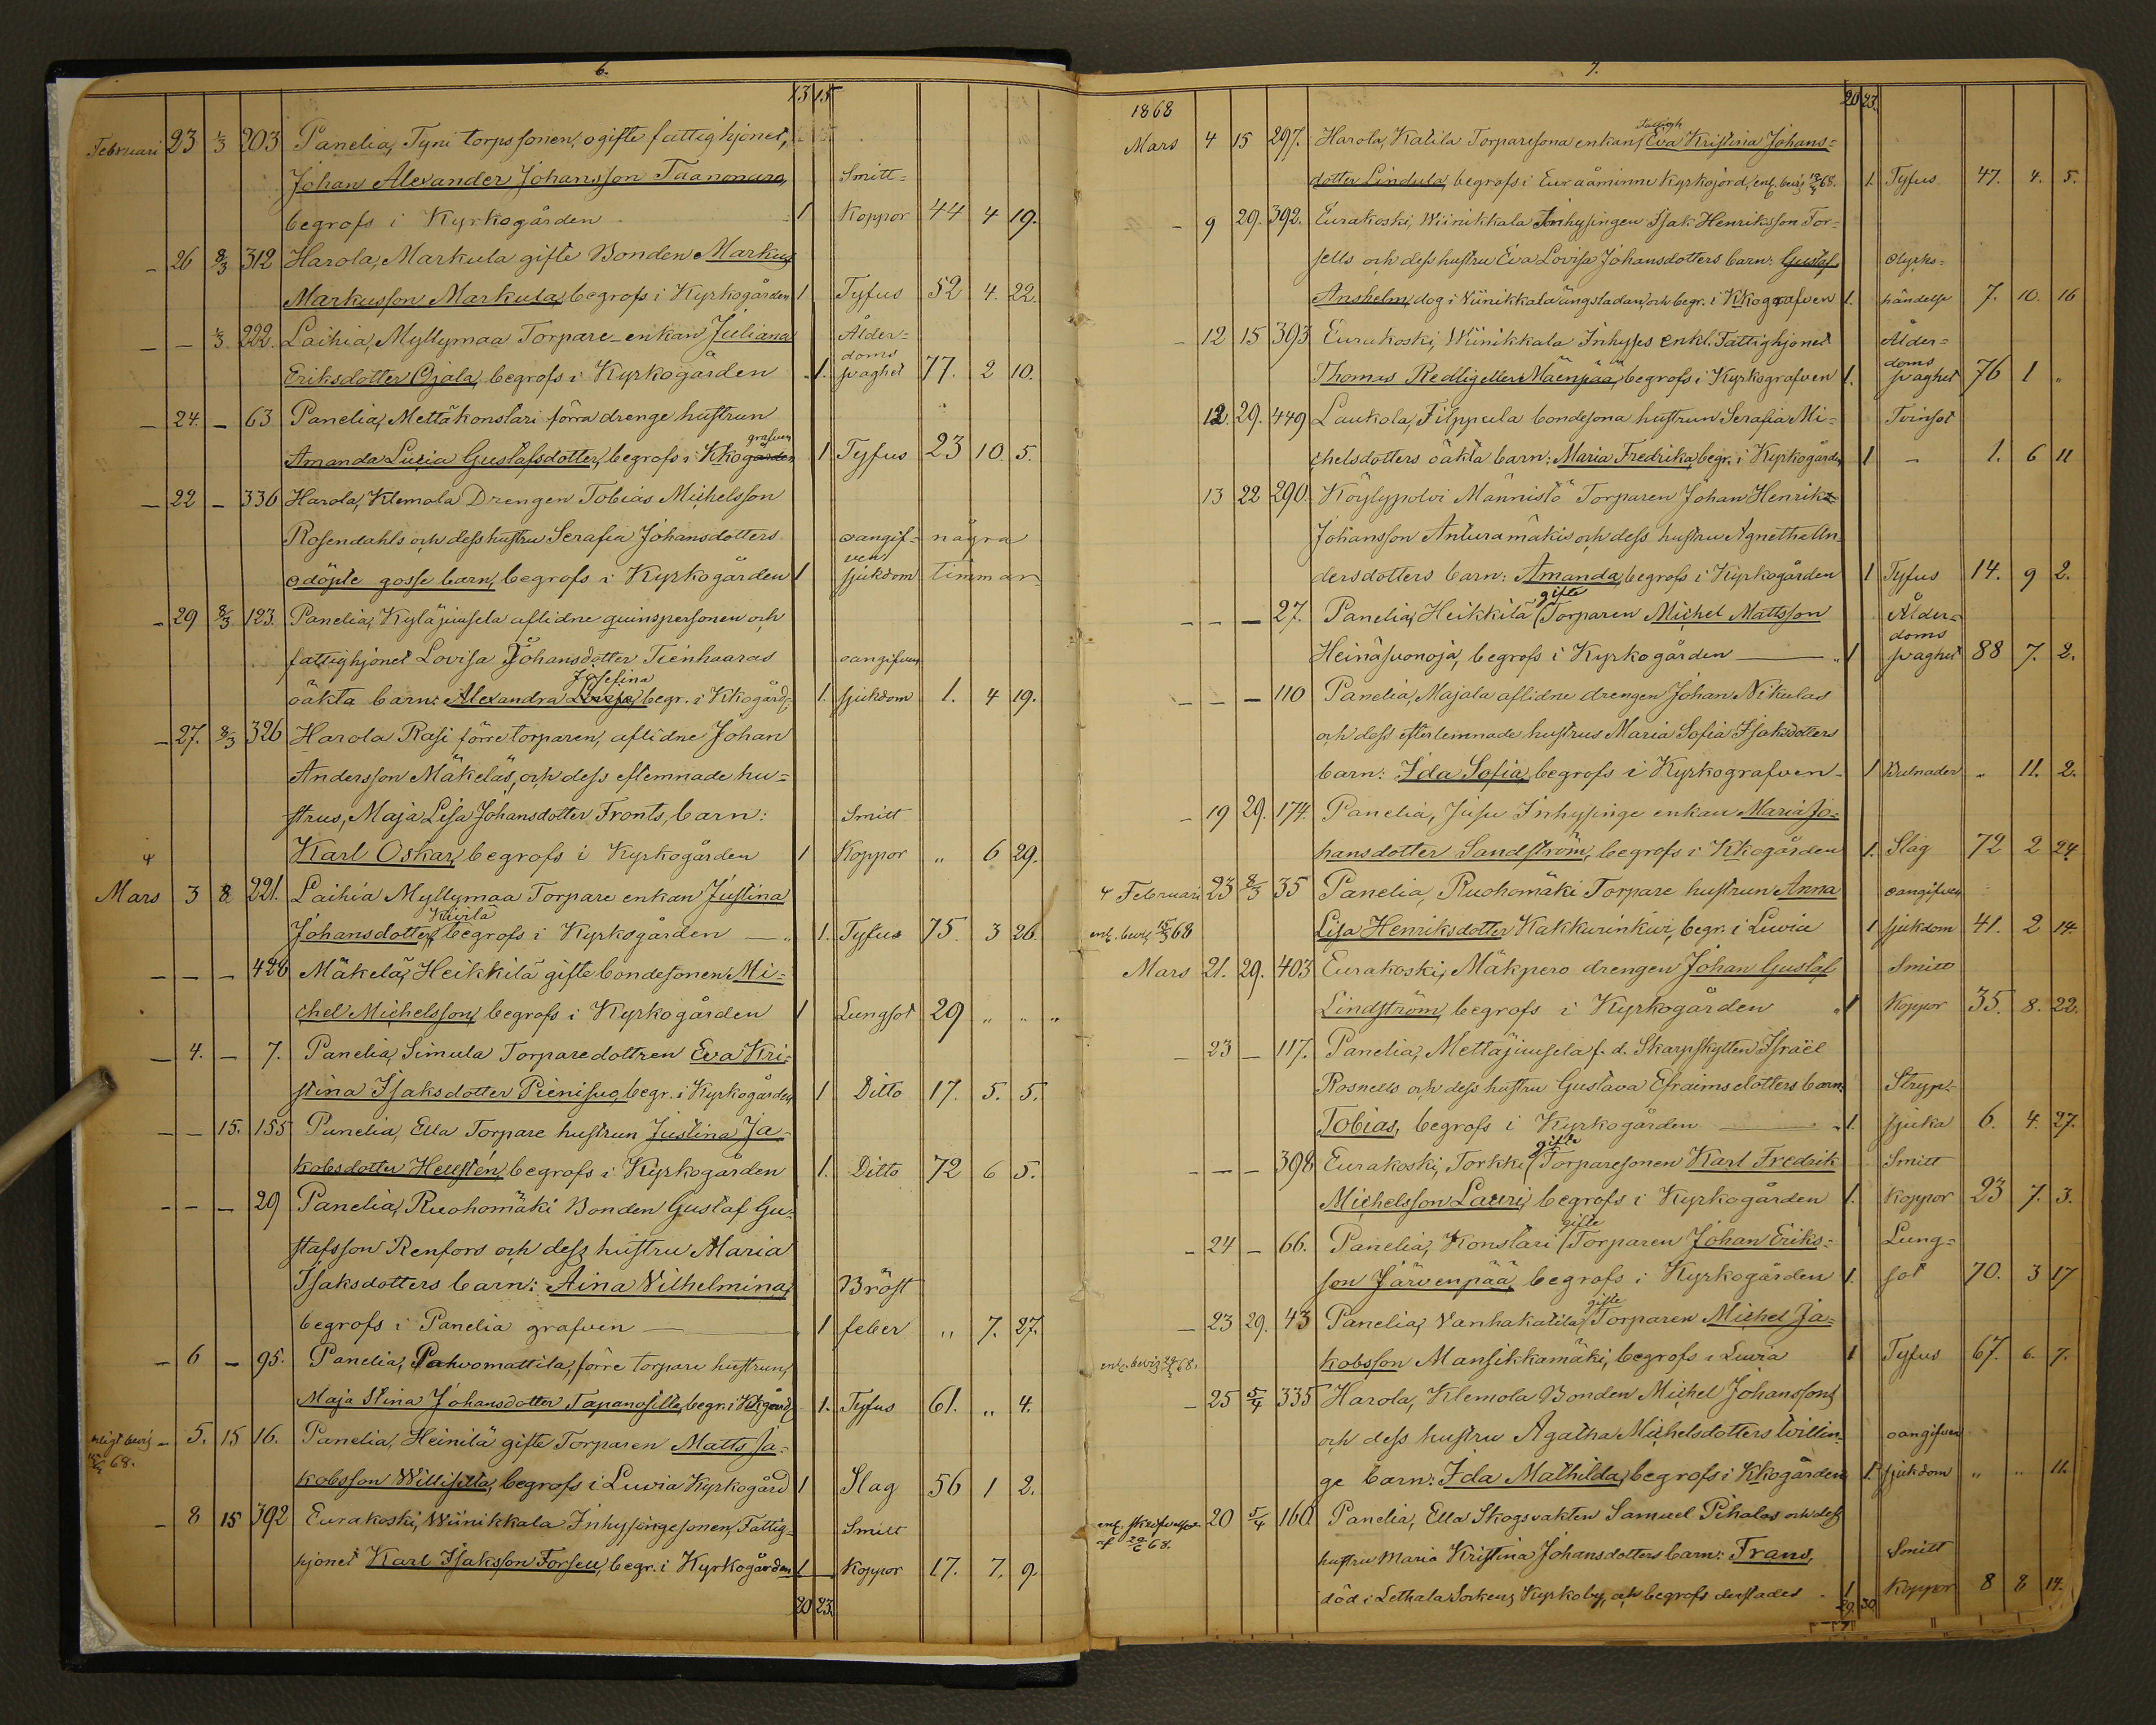 6.
13 15
Februari 23 1/3 203 Panelia, Tyni torpssonen, ogifte fattighjonet,
Johan Alexander Johansson Taanonaro, Smitt=
begrofs i Kyrkogården 1 Koppor 44 4 19.
– 26 8/3 312 Harola, Markula gifte Bonden Markus
Markusson Markula, begrofs i Kyrkogården 1 Tyfus 52 4. 22.
– – 1/3 222. Laihia, Myllymaa Torpare-enkan Juliana Ålder=
doms
Eriksdotter Ojala, begrofs i Kyrkogården 1. svaghet 77. 2 10.
– 24. – 63 Panelia, Mettäkonstari förra drenge hustrun
grafven
Amanda Lucia Gustafsdotter, begrofs i Kkogården 1 Tyfus 23 10. 5.
– 22 – 336 Harola, Klemola Drengen Tobias Michelsson
Rosendahls och dess hustru Serafia Johansdotters oangif= några
ven
odöpte gosse barn, begrofs i Kyrkogården 1 sjukdom timmar
– 29 8/3 123. Panelia, Kyläjuusela aflidne quinspersonen och
fattighjonet Lovisa Johansdotter Tienhaaras oangifven
Josefina
oäkta barn: Alexandra Lovisa, begr. i Kkogård 1. sjukdom 1. 4 19.
– 27. 8/3 326 Harola Rasi förre torparen, aflidne Johan
Andersson Mäkeläs, och dess eftemnade hu=
strus, Maja Lisa Johansdotter Fronts, barn: Smitt
Karl Oskar, begrofs i Kyrkogården 1 Koppor " 6 29.
Mars 3 8 221. Laihia Myllymaa Torpare enkan Justina
Kivilä
Johansdotter, begrofs i Kyrkogården — " 1. Tyfus 75. 3 26.
– – – 428 Mäkelä, Heikkilä gifte bondesonen Mi=
chel Michelsson, begrofs i Kyrkogården 1 Lungsot 29 " " "
– 4. – 7. Panelia, Simula Torparedottren Eva Kri=
stina Isaksdotter Pienisuo, begr. i Kyrkogården 1 Ditto 17. 5. 5.
– – 15. 155 Panelia, Ella Torpare hustrun Justina Ja=
kobsdotter Hellstén, begrofs i Kyrkogården 1. Ditto 72 6 5.
– – – 29 Panelia, Ruohomäki Bonden Gustaf Gu=
stafsson Renfors och dess hustru Maria
Isaksdotters barn: Aina Vilhelmina, Bröst
begrofs i Panelia grafven — 1 feber " 7. 27.
– 6 – 95. Panelia, Pahvomattila, förre torpare hustrun,
Maja Stina Johansdotter Tapanosilla, begr. i Kkgård 1. Tyfus 61. " 4.
enligt bevis – 5. 15 16. Panelia, Heinilä gifte Torparen Matts Ja=
68.
kobsson Willisilta, begrofs i Luvia Kyrkogård 1 Slag 56 1 2.
– 8 15 392 Eurakoski, Wiinikkala Inhysingesonen, Fattig= Smitt
hjonet Karl Isaksson Forsell, begr. i Kyrkogården 1 Koppor 17. 7. 9.
20 23.
7.
20 23.
1868
Fattigh
Mars 4 15 297. Harola, Katila Torparesona enkan, Eva Kristina Johans=
dotter Lindula, begrofs i Euraåminne Kyrkojord, enl. bevis 68. 1. Tyfus 47. 4. 5.
– 9 29. 392. Eurakoski, Wiinikkala Inhysingen Isak Henriksson For=
sells och dess hustru Eva Lovisa Johansdotters barn: Gustaf Olycks=
Anshelm, dog i Viinikkala ängsladan, och begr. i Kkografven 1. händelse 7. 10. 16
– 12 15 393 Eurakoski, Wiinikkala Inhyses enkl. Fattighjonet Ålder=
doms
Thomas Redlig eller Mäenpää, begrofs i Kyrkografven 1. svaghet 76 1 "
12. 29. 449 Laukola, Filppula bondesona hustrun Serafia Mi= Tvinsot
chelsdotters oäkta barn: Maria Fredrika, begr. i Kyrkogården 1 – 1. 6 11
13 22 290. Köylypolvi Männistö Torparen Johan Henrik
Johansson Anturamäkis och dess hustru Agnetha An=
dersdotters barn: Amanda, begrofs i Kyrkogården 1 Tyfus 14. 9 2.
gifte
– – – 27. Panelia, Heikkilä Torparen Michel Mattsson Ålder=
doms
Heinäsuonoja, begrofs i Kyrkogården — 1 svaghet 88 7. 2.
– – – 110 Panelia, Majala aflidne drengen Johan Nikulas
och dess efterlemnade hustrus Maria Sofia Isaksdotters
barn: Ida Sofia, begrofs i Kyrkografven 1 Bulnader " 11. 2.
– 19 29. 174. Panelia, Jusu Inhysinge enkan Maria Jo=
hansdotter Sandström, begrofs i Kkogården 1. Slag 72 2 24.
Februari 23 8/3 35 Panelia, Ruohomäki Torpare hustrun Anna oangifven
enl. bevis 15/3 68 Lisa Henriksdotter Kakkurinkivi, begr. i Luvia 1 sjukdom 41. 2 14.
Mars 21. 29. 403 Eurakoski, Mäkpero drengen Johan Gustaf Smitt
Lindström, begrofs i Kyrkogården 1 Koppor 35. 8. 22.
– 23 – 117. Panelia, Mettäjuusela f. d. Skarpskytten Israël
Rosnells och dess hustru Gustava Efraimsdotters barn: Stryp=
Tobias, begrofs i Kyrkogården — 1. sjuka 6. 4. 27.
gifte
– – – 398 Eurakoski, Torkki Torparesonen Karl Fredrik Smitt
Michelsson Lauri, begrofs i Kyrkogården 1. Koppor 23 7. 3.
gifte
– 24 – 66. Panelia, Konstari Torparen Johan Eriks= Lung=
son Järvenpää, begrofs i Kyrkogården 1. sot 70. 3 17
gifte
– 23 29. 43 Panelia, Vanhakatila, Torparen Michel Ja=
enl. bevis 68. kobsson Mansikkamäki, begrofs i Luvia 1 Tyfus 67. 6. 7.
– 25 5/4 335 Harola, Klemola Bonden Michel Johanssons
och dess hustru Agatha Michelsdotters tvillin= oangifven
ge barn: Ida Mathilda, begrofs i Kkogården 1. sjukdom " " 11.
enl. 20 5/4 160. Panelia, Ella Skogsvakten Samuel Pihalas och dess
68.
hustru Maria Kristina Johansdotters barn: Frans, Smitt
död i Lethala Sockens Kyrkoby, och begrofs derstades 1 Koppor 8 8 14.
29. 30.